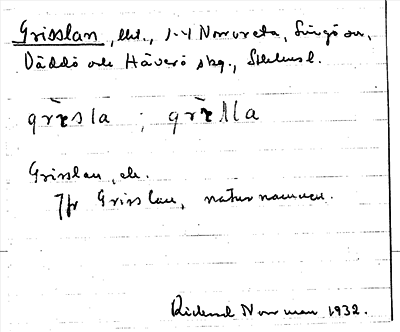 Grisslan, ägolott, 1-4 Norrveda, Singö sn,
Väddö och Häverö skg., Sthlms l.
grɪ̀sla ; grɪ̀ʎʎa
Grisslan, ek.
Jfr Grisslan, naturnamnen.
Rickard Norrman 1932.